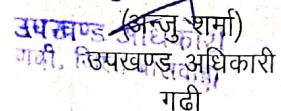 (अन्जु शर्मा)
उपखण्ड अधिकारी
उपखण्ड अधिकारी
गढी